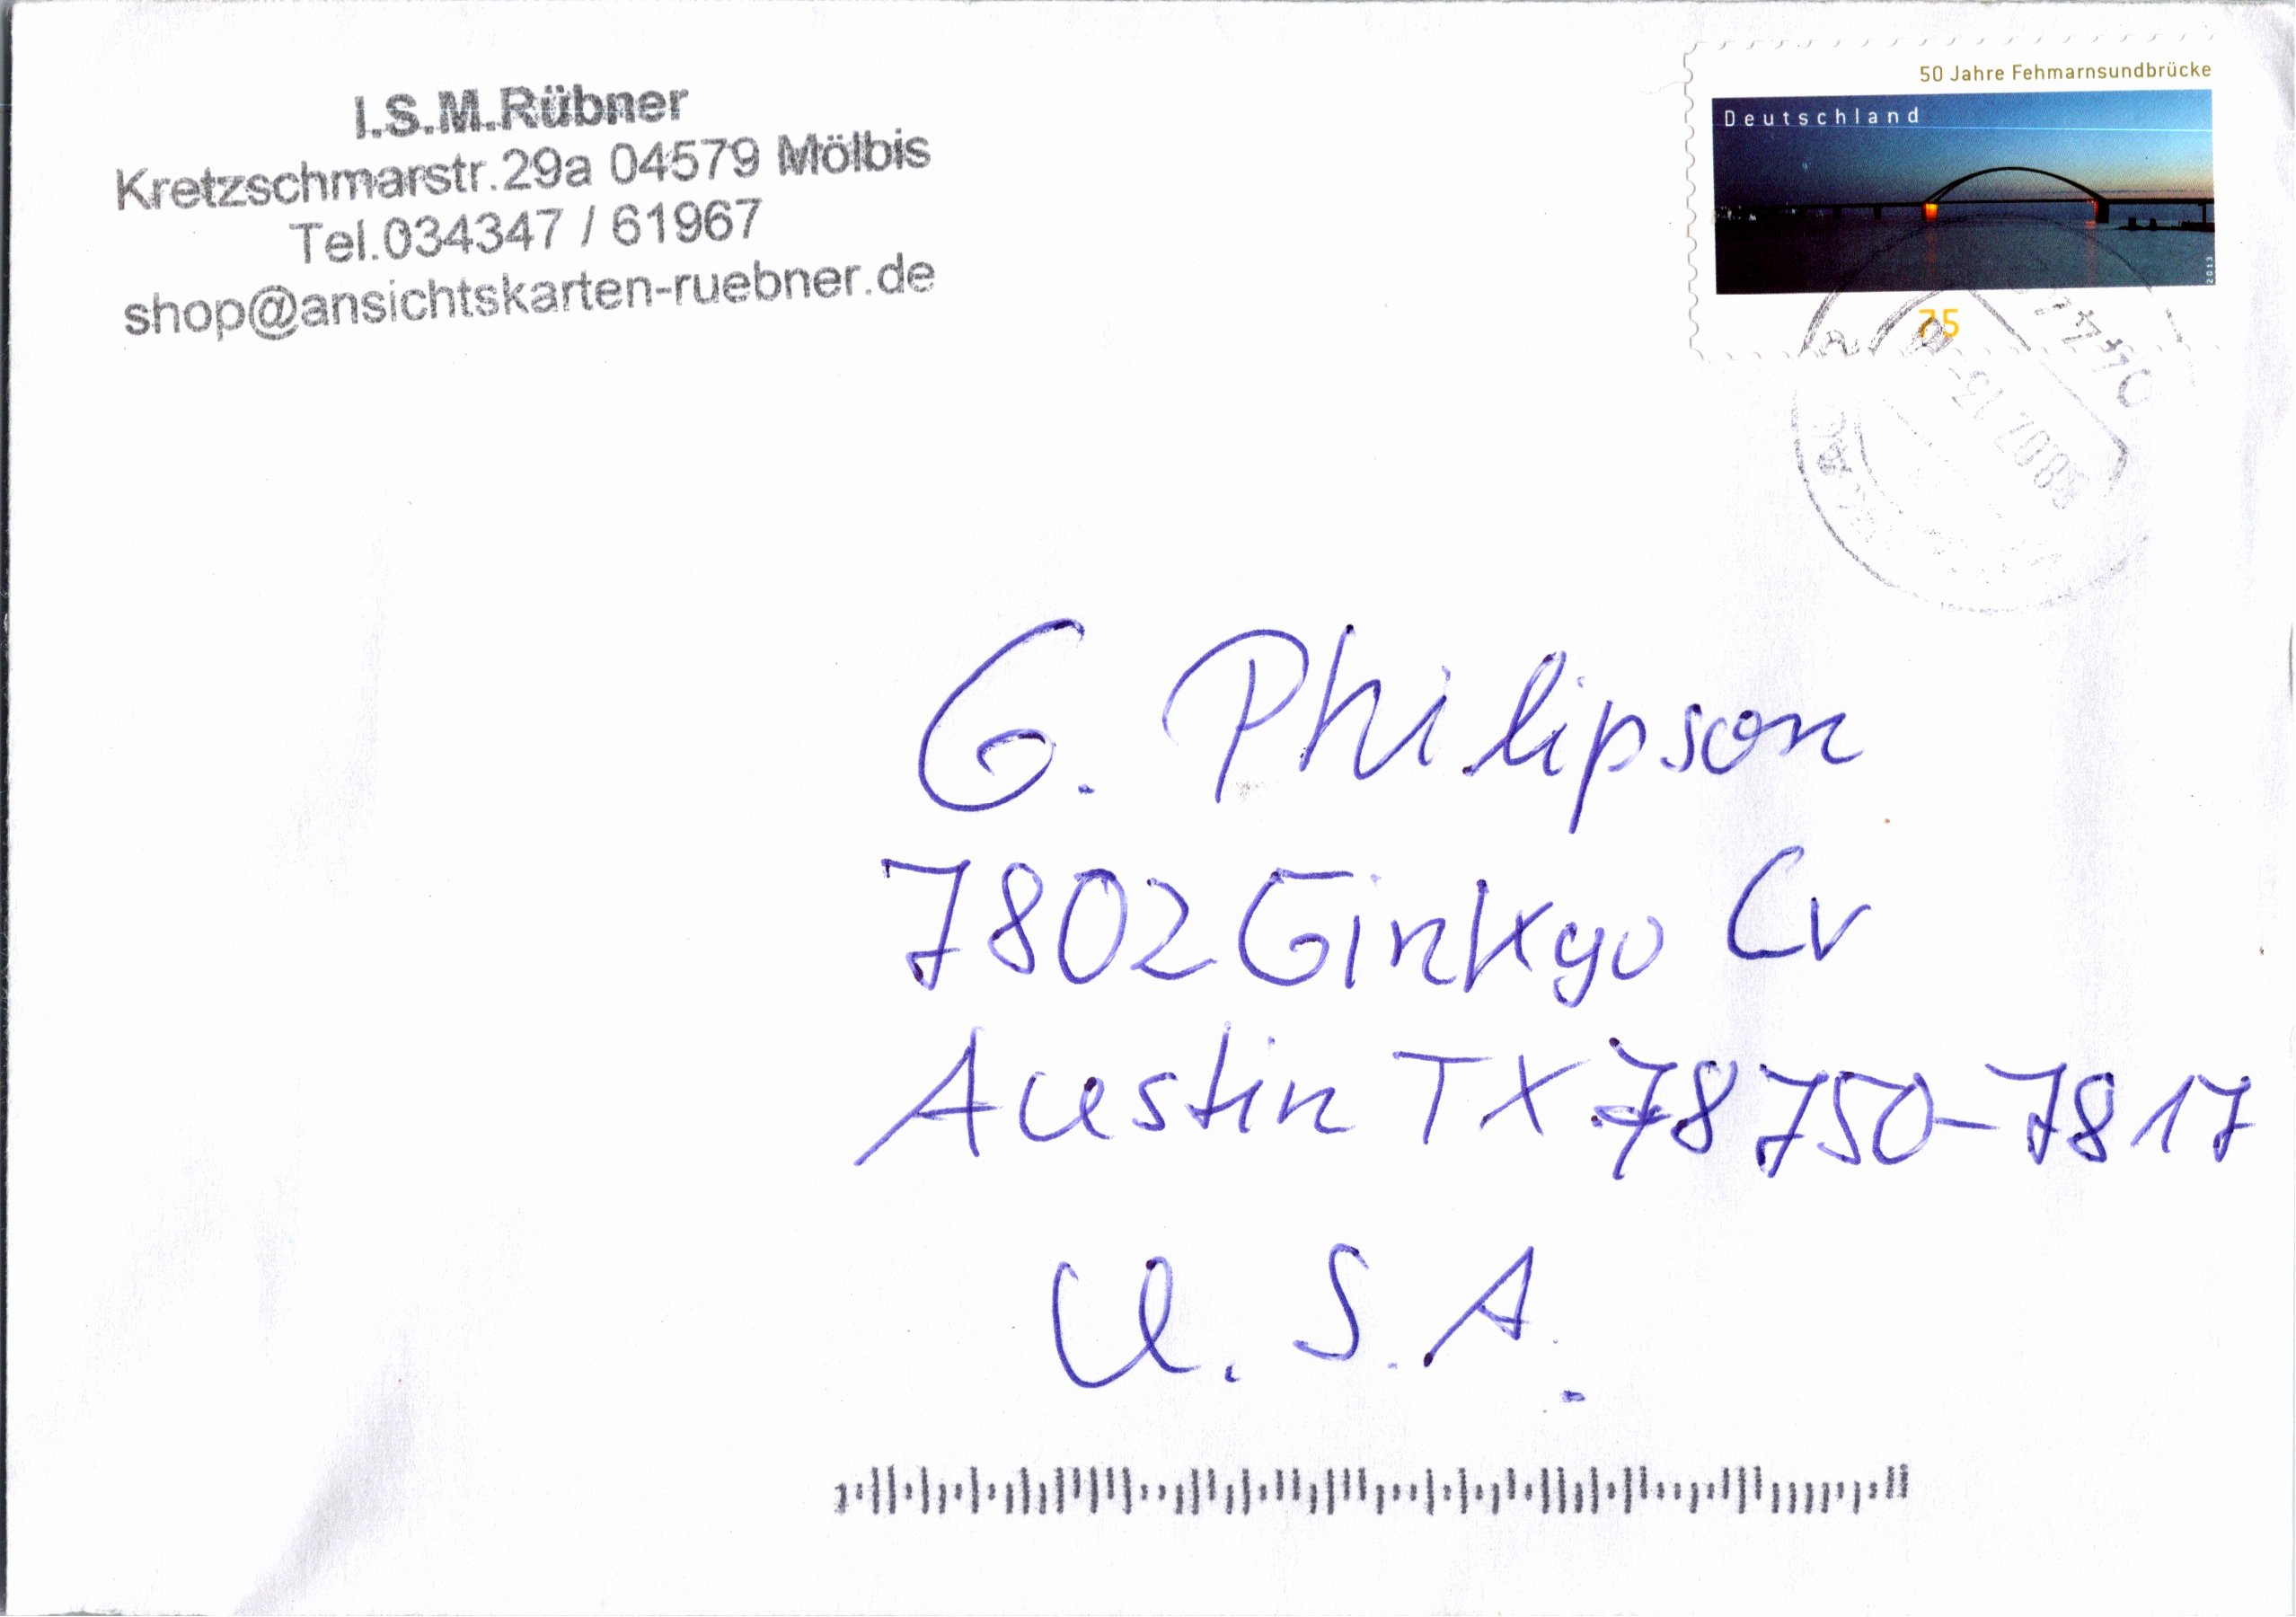 I.S.M.Rübner
Kretzschmarstr.29a 04579 Mölbis
Tel.034347 / 61967
shop@ansichtskarten-ruebner.de
50 Jahre Fehmarnsundbrücke
Deutschland
2013
75
G. Philipson
7802 Ginkgo Cv
Austin TX 78750-7817
U.S.A.